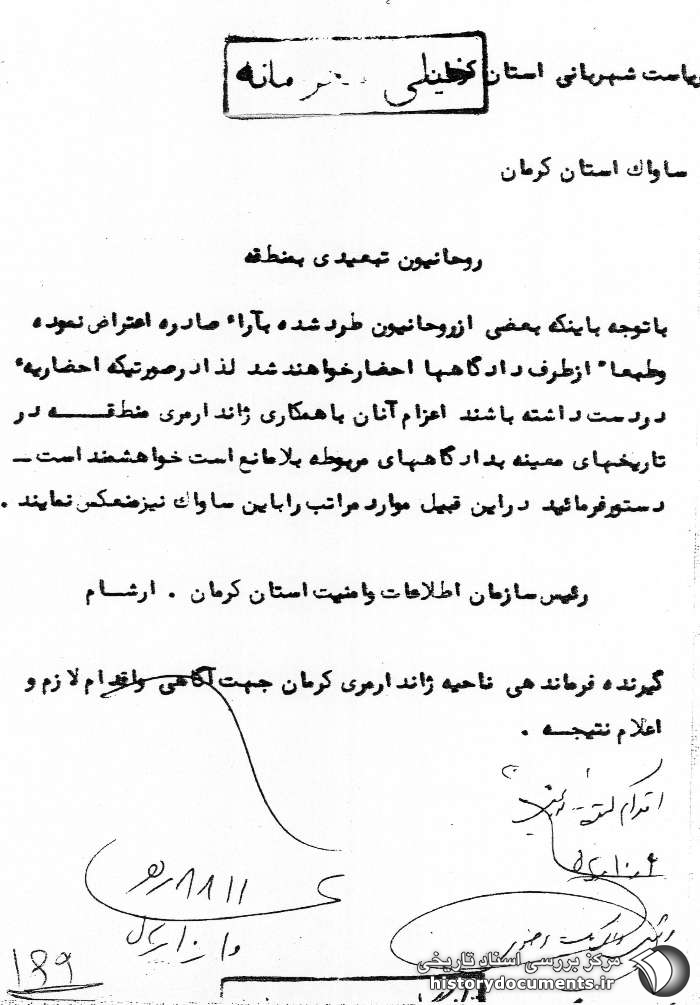 ریاست شهربانی استان کرمان
خیلی محرمانه
ساواك استان کرمان
روحانیون تبعیدی بمنطقه
باتوجه باینکه بعضی ازروحانیون طرد شده بآراء صادره اعتراض نموده
وطبعا" ازطرف دادگاهها احضارخواهند شد لذا درصورتیکه احضاریهء
دردست داشته باشند اعزام آنان باهمکاری ژاندارمری منطقــــه در
تاریخهای معینه بدادگاههای مربوطه بلامانع است خواهشمند است ــ
دستورفرمائید دراین قبیل موارد مراتب رابا‌ین ساواك نیزمنعکس نمایند .
رئیس سازمان اطلاعات وامنیت استان کرمان . ارشــام
گیرنده فرماندهی ناحیه ژاندارمری کرمان جهت آگاهی واقدام لازم و
اعلام نتیجــه .
اقدام
۱۱ ۸۸
۱۸۹
مرکز بررسی اسناد تاریخی
historydocuments.ir